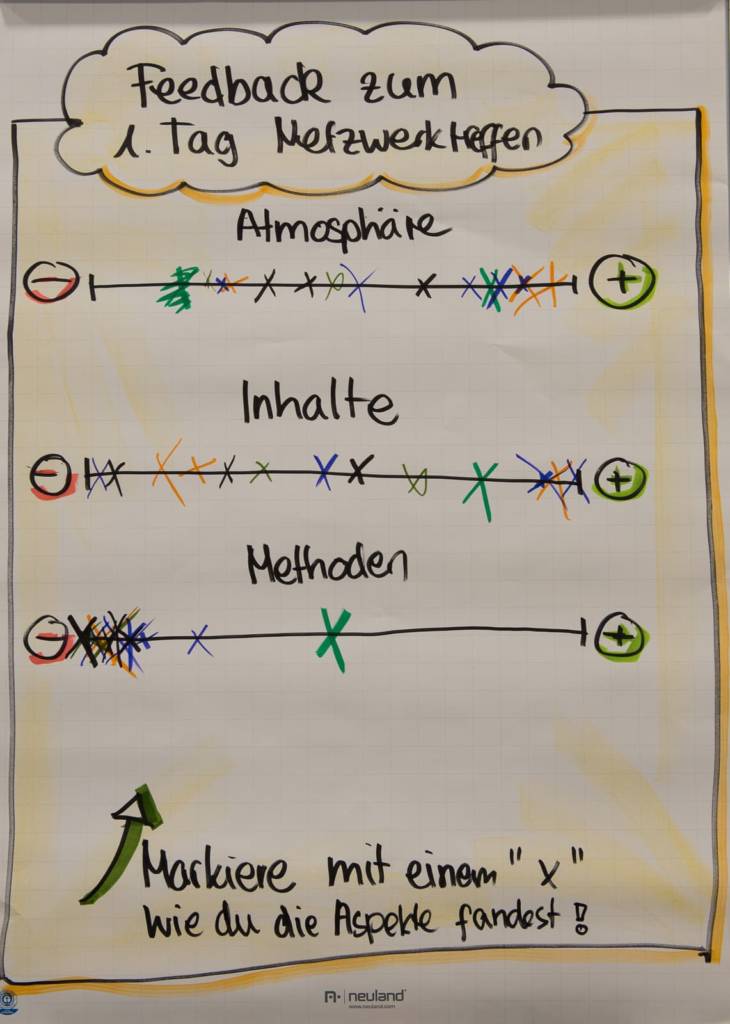 Feedback zum
1. Tag Netzwerktreffen
Atmosphäre
−
+
Inhalte
−
+
Methoden
−
+
Markiere mit einem "x"
wie du die Aspekte fandest!
neuland
www.neuland.com